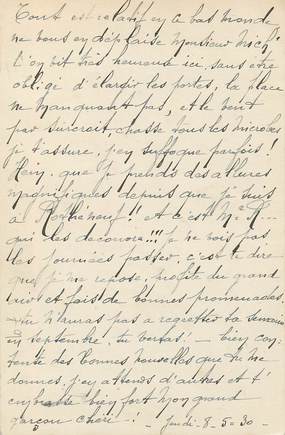 Tout est relatif en ce bas monde
ne vous en déplaise Monsieur Mich!
L'on vit très heureuse ici, sans être
obligé d'élargir les portes, la place
ne manquant pas, et le vent
par surcroit, chasse tous les microbes
je t'assure, j'en suffoque parfois!
Hein, que je prends des allures
magnifiques depuis que je suis
à Rothéneuf!! et c'est
qui les découvre!!! je ne vois pas
les journées passer, c'est te dire
que je me repose, profite du grand
air et fais de bonnes promenades.
tu n'auras pas à regretter ta semaine
en septembre, tu verras! — bien con-
tente des bonnes nouvelles que tu me
donnes, j'en attends d'autres et t'
embrasse bien fort mon grand
garçon chéri! - Jeudi - 8-5-30 -